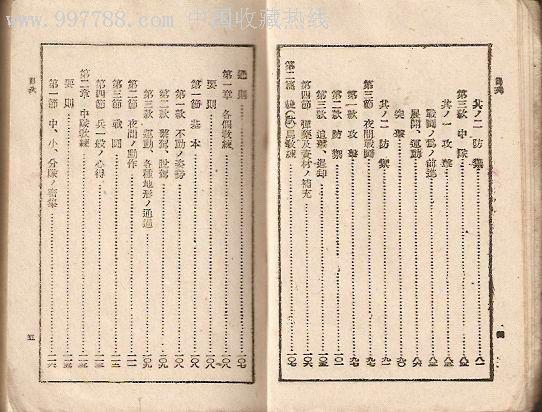 www.997788.com 中国收藏热线
目次
其ノ二 防禦 八一
第三款 中隊 八二
其ノ一 攻撃 八二
戰鬪ノ爲ノ前進 八三
展開、運動 八六
突撃 九〇
其ノ二 防禦
第三節 夜間戰鬪 九七
第一款 攻撃 九七
第二款 防禦 一〇一
第三款 追撃、退却
第四節 彈藥及資材ノ補充
第二篇 馬教練 一〇七
四
目次
通則 一〇七
第一章 各個教練 一〇八
要則 一〇八
第一節 基本 一〇八
第一款 不動ノ姿勢 一〇八
第二款 繋駕、脫駕 一〇九
第三款 運動、各種地形ノ通過 一〇九
第二節 夜間ノ動作 一一一
第三節 戰鬪 一一二
第四節 兵一般ノ心得
第二章 中隊教練 一一五
要則 一一五
第一節 中、小、分隊ノ密集 一一六
五